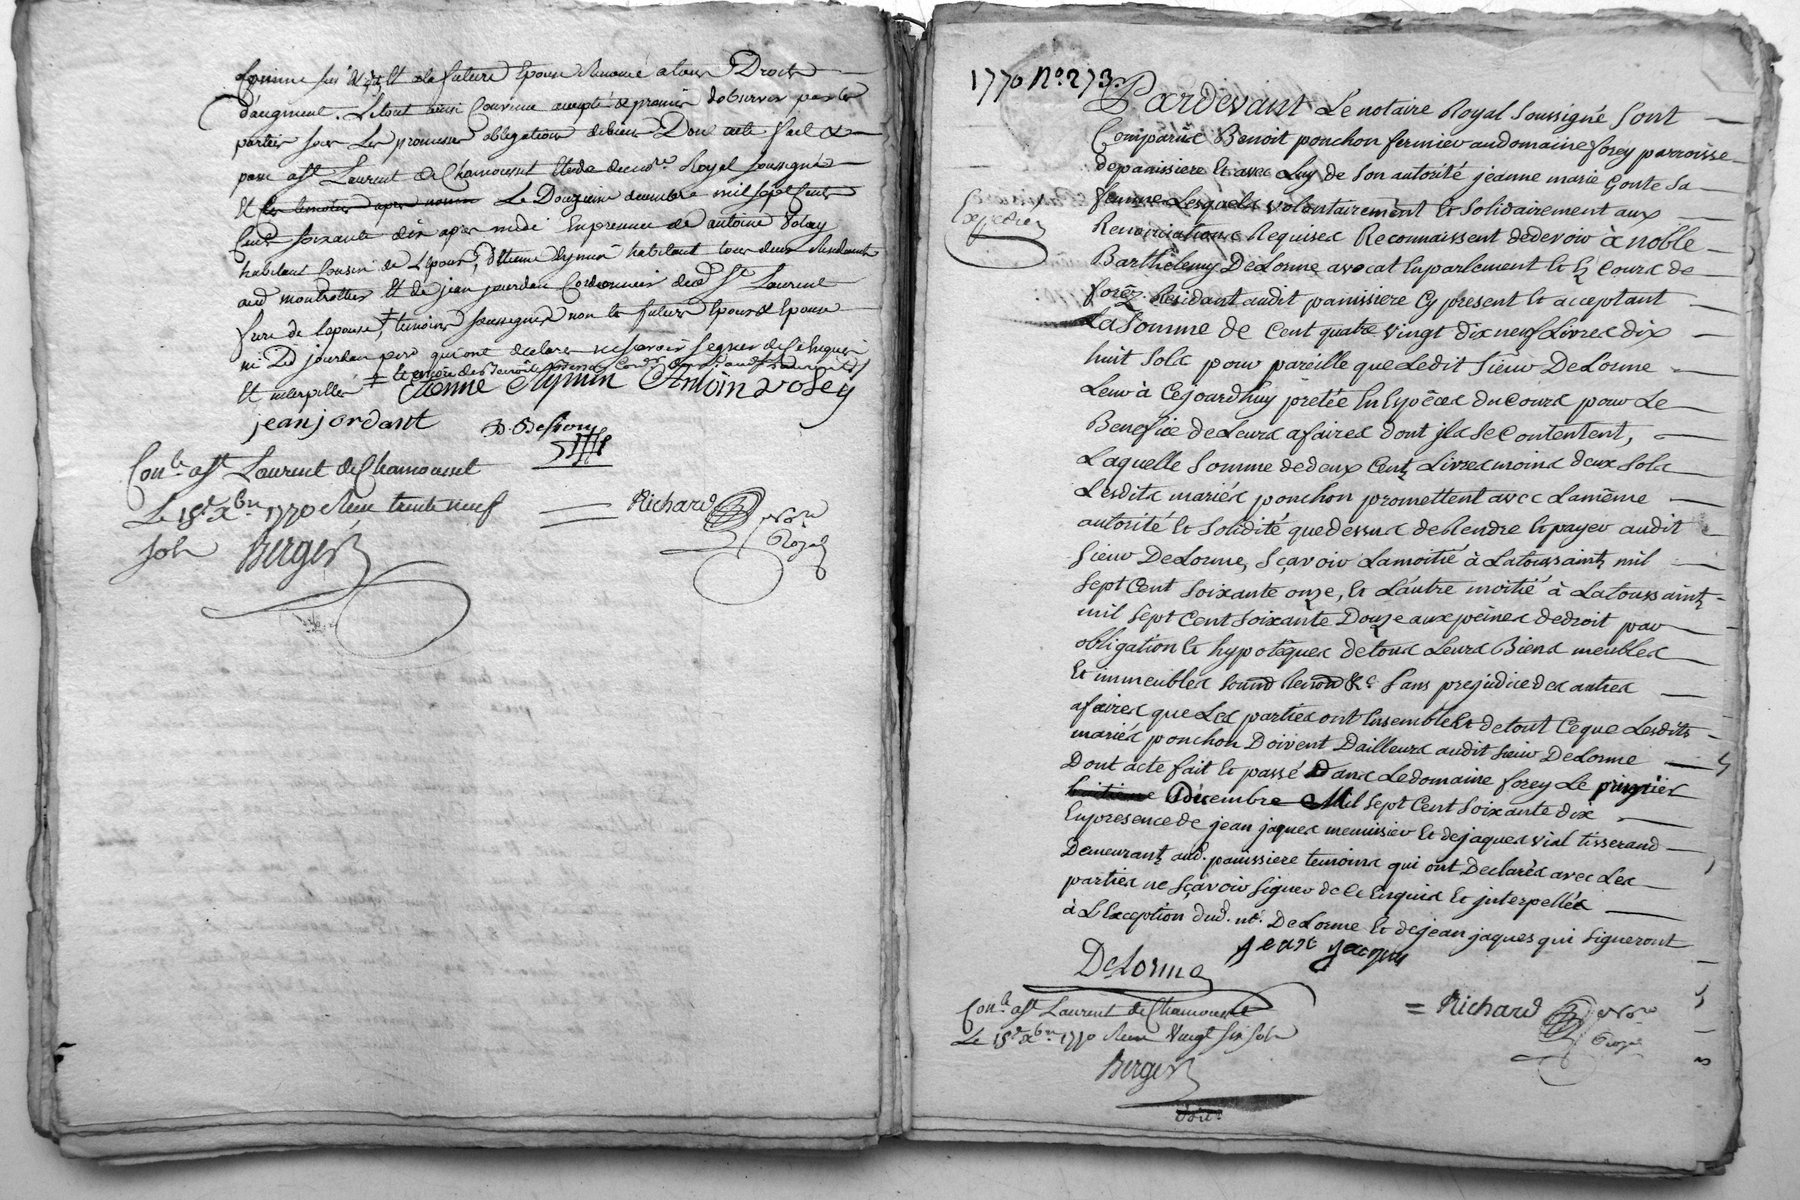 femme sus dit, Et la future Epouse Renoncé a tous Droits
d'augment. Le tout ainsi Convenu accepté & promis d'observer par les
parties sous Les promesses obligations de biens. Dont acte fait &
passé a St Laurent de Chamousset Etude du notre Royal soussigné
Et Le Douzieme decembre mil sept cents
Cents soixante dix après midi En presence de antoine Voley
habitant Cousin de L'epouse, d'Etienne Eymin habitant tous deux Residants
aud montrottier Et de jean jourdan Cordonnier dud St Laurent
frere de lepouse, temoins soussignés non les futurs Epoux & Epouse
ni Le jourdan pere qui ont declaré ne sçavoir signer de ce Enquis
Et interpellés
Etienne Eymin Antoin voley
jean jordant
Conle a St Laurent de Chamousset
Le 15e Xbre 1770 Reçu trente neuf
sols Berger
Richard Nore
Royal
1770 No. 273.
Pardevant Le notaire Royal Soussigné Sont
Comparus Benoit ponchon fermier au domaine forey parroisse
de panissiere Et avec Luy de Son autorité jeanne marie Gonte Sa
femme Lesquels volontairement Et Solidairement aux
Renonciations Requises Reconnaissent de devoir à noble
Barthelemy DeLorme avocat En parlement Et Ez Cours de
forêz Residant audit panissiere Cy present Et acceptant
La Somme de Cent quatre vingt dix neuf Livres dix
huit Sols pour pareille que Ledit Sieur DeLorme
Leur à Cejourdhuy prêtée En Espêces du Cours pour Le
Benefice de Leurs afaires dont jls Se Contentent,
Laquelle Somme de deux Centz Livres moins deux Sols
Lesdits mariés ponchon promettent avec La même
autorité Et Solidité que dessus de Rendre Et payer audit
Sieur DeLorme, Sçavoir La moitié à La toussaintz mil
Sept Cent Soixante onze, Et L'autre moitié à La toussaintz
mil Sept Cent Soixante Douze aux peines de droit par
obligation Et hypotêques de tous Leurs Biens meubles
Et immeubles Soumo Renono &c Sans prejudice des autres
afaires que Les parties ont Ensemble Et de tout Ce que Lesdits
mariés ponchon Doivent D'ailleurs audit Sieur DeLorme
Dont acte fait Et passé Dans Le domaine forey Le premier
Décembre Mil Sept Cent Soixante dix
En presence de jean jaques menuisier Et de jaques vial tisserand
Demeurantz aud. panissiere temoins qui ont Declarés avec Les
parties ne Sçavoir Signer de Ce Enquis Et jnterpellés
à L'Exception dud. nt. DeLorme Et de jean jaques qui Signeront
DeLorme jean jacque
Conle a St Laurent de Chamousset
Le 15e Xbre 1770 Reçu Vingt six sols
Berger
Richard Nore
Royal